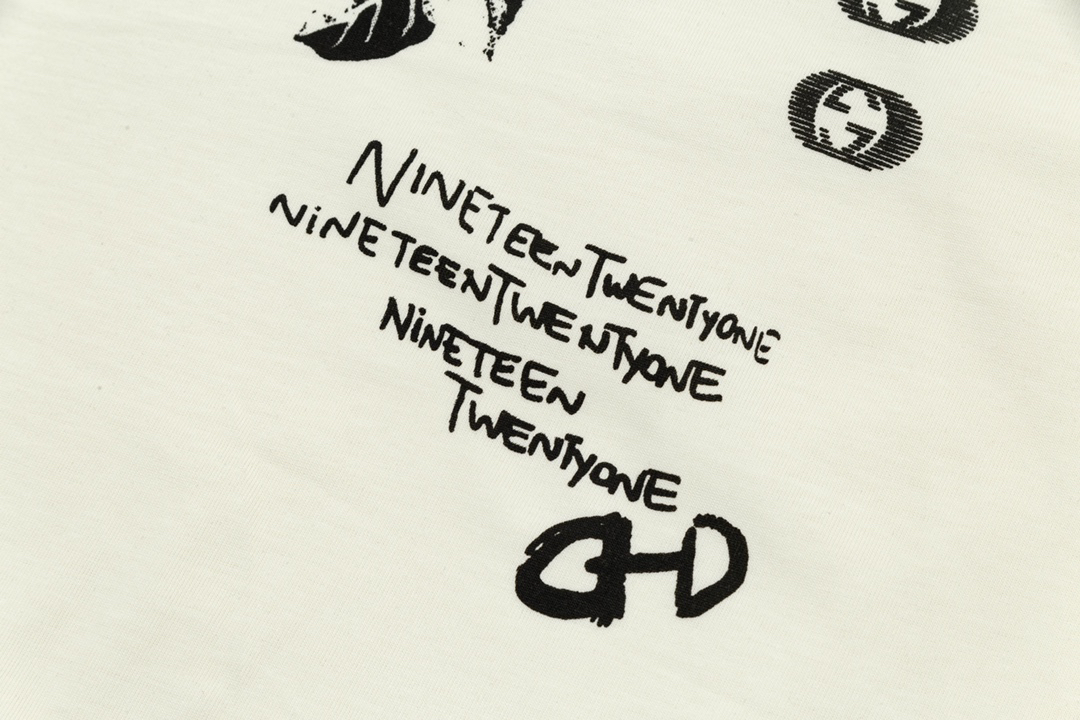 NINETEENTWENTYONE
NiNETEENTWENTYONE
NiNETEEN
TWENTYONE